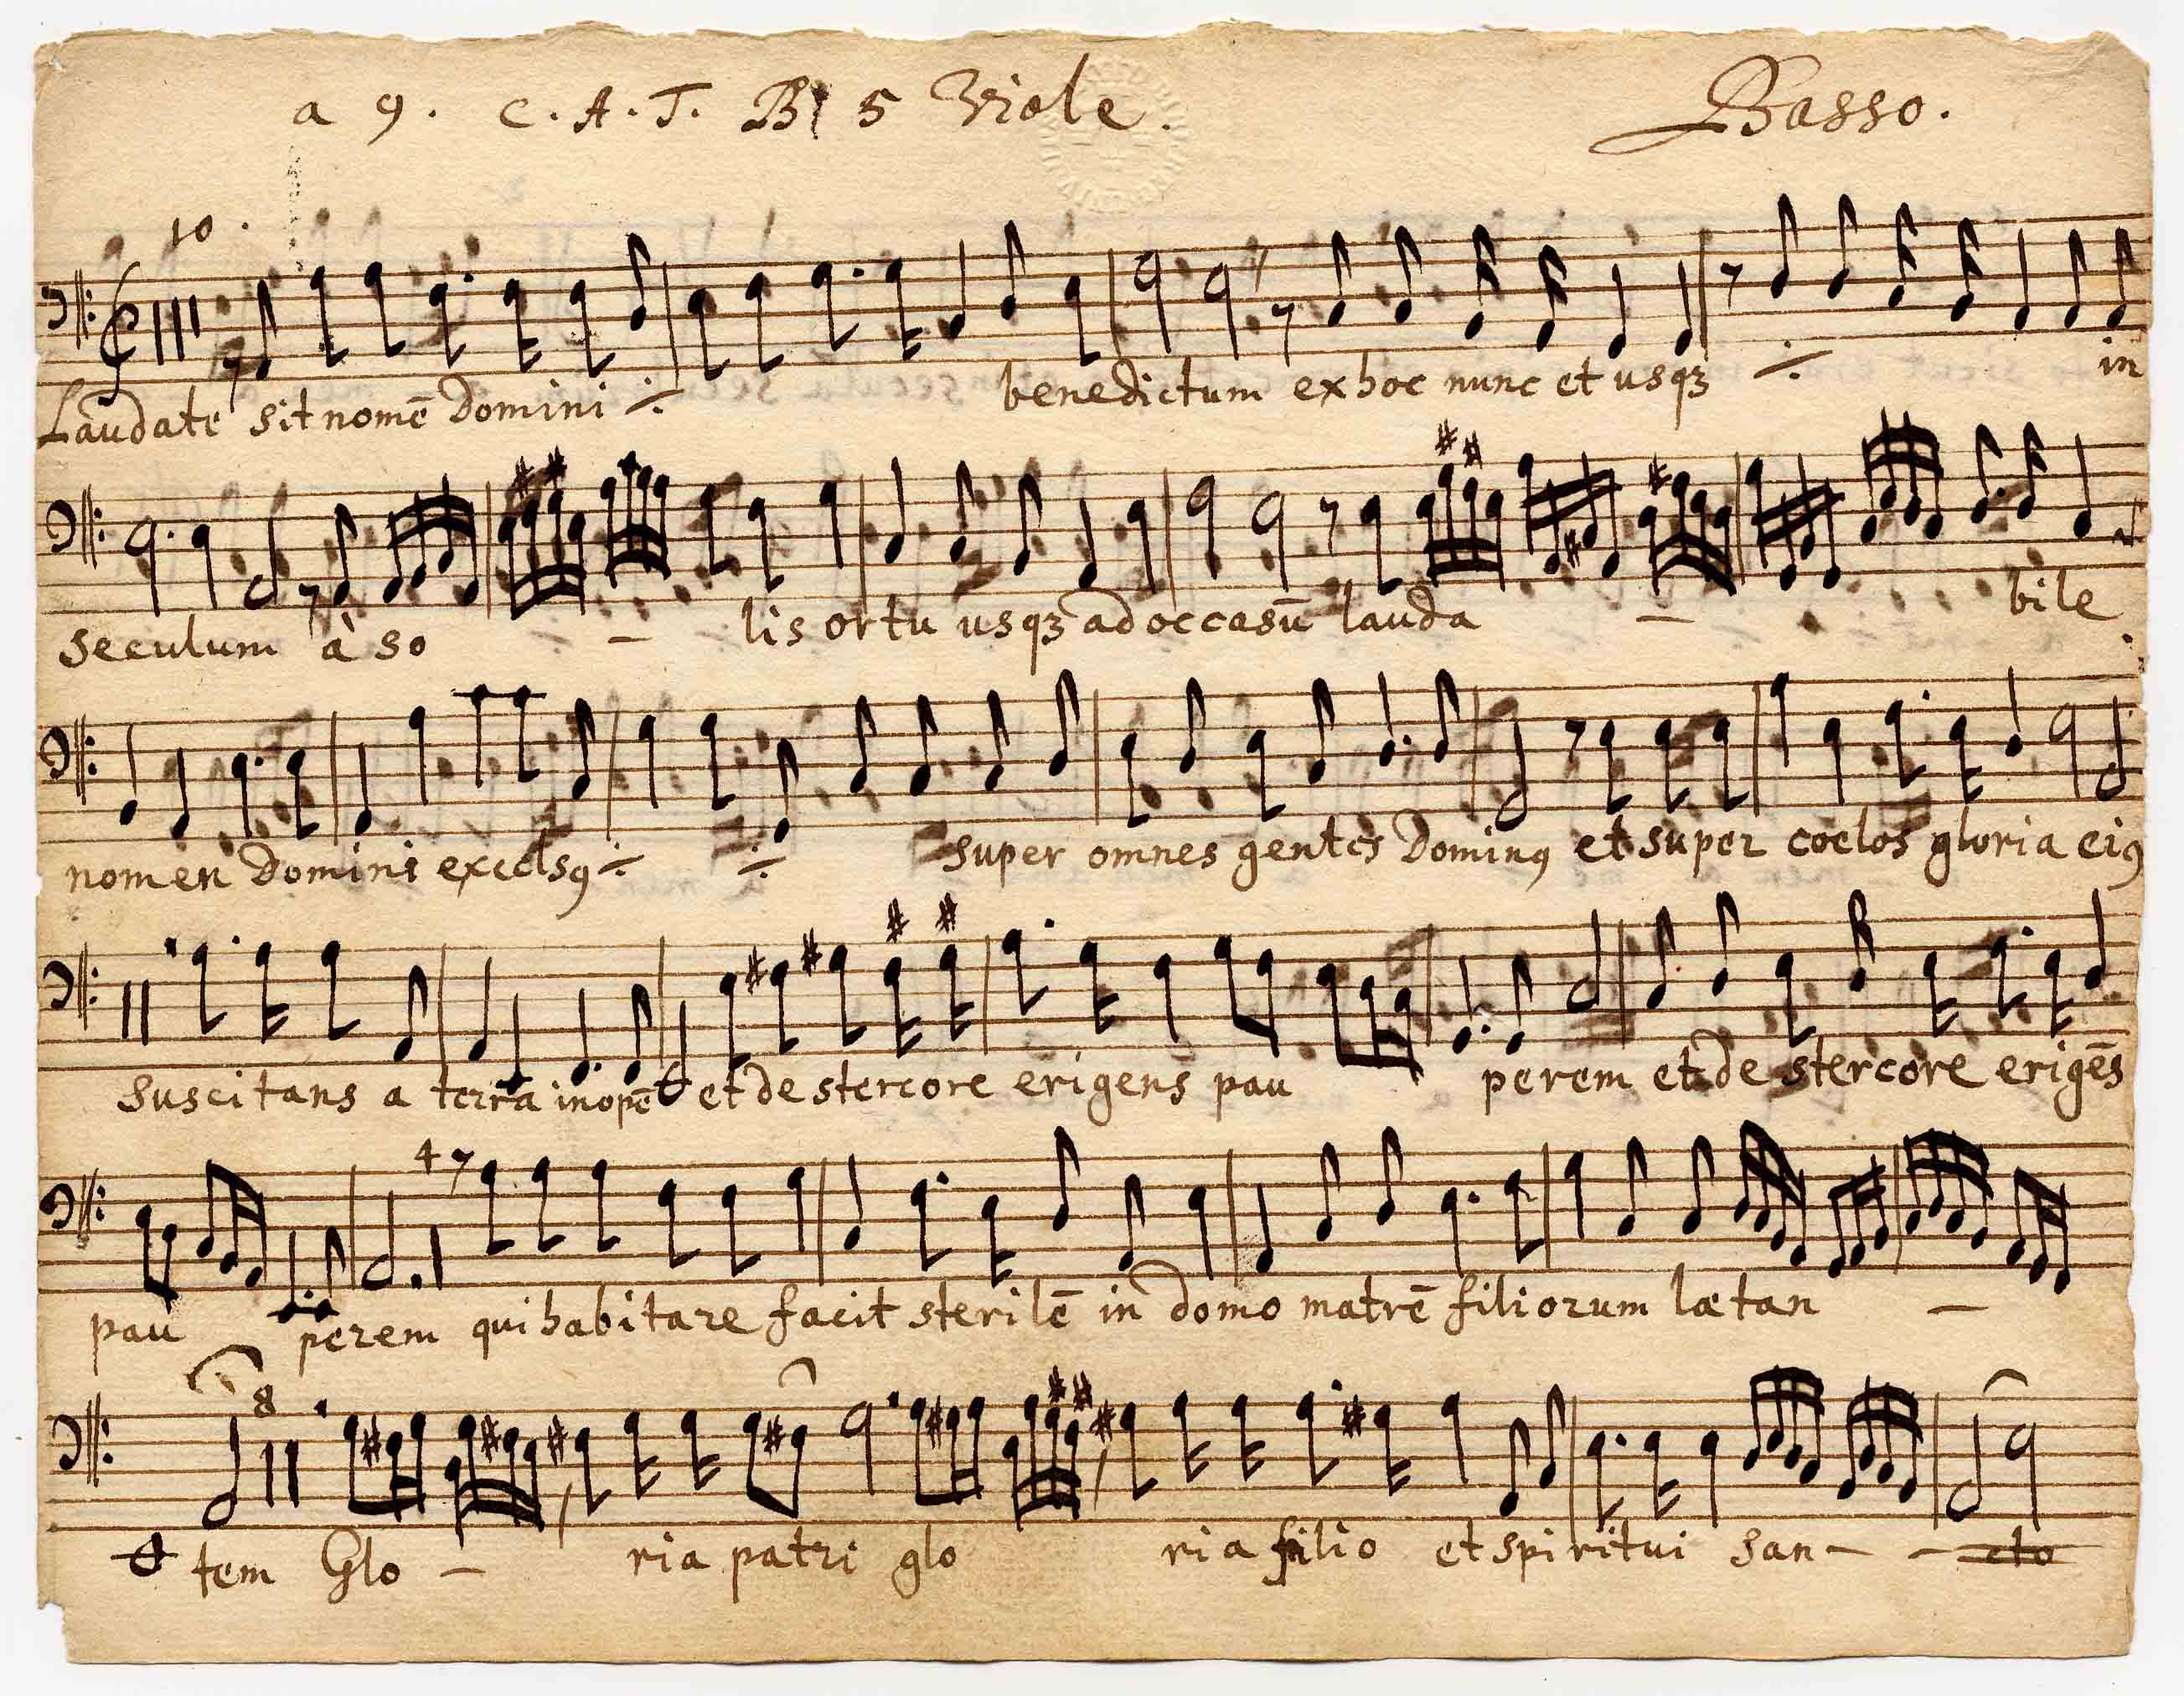 a 9. C. A. T. B 5 Viole. Basso.
10.
Laudate sit nomē Domini ·/· benedictum ex hoc nunc et usqꝫ ·/· in
seculum à so - lis ortu usqꝫ ad occasū lauda - bile
nomen Domini excelsꝯ ·/· ·/· super omnes gentes Dominꝯ et super coelos gloria eiꝯ
suscitans a terrā inopē et de stercore erigens pau perem et de stercore erigēs
4
pau perem qui habitare facit sterilē in domo matrē filiorum lætan -
8
tem Glo - ria patri glo ria filio et spiritui san - - cto